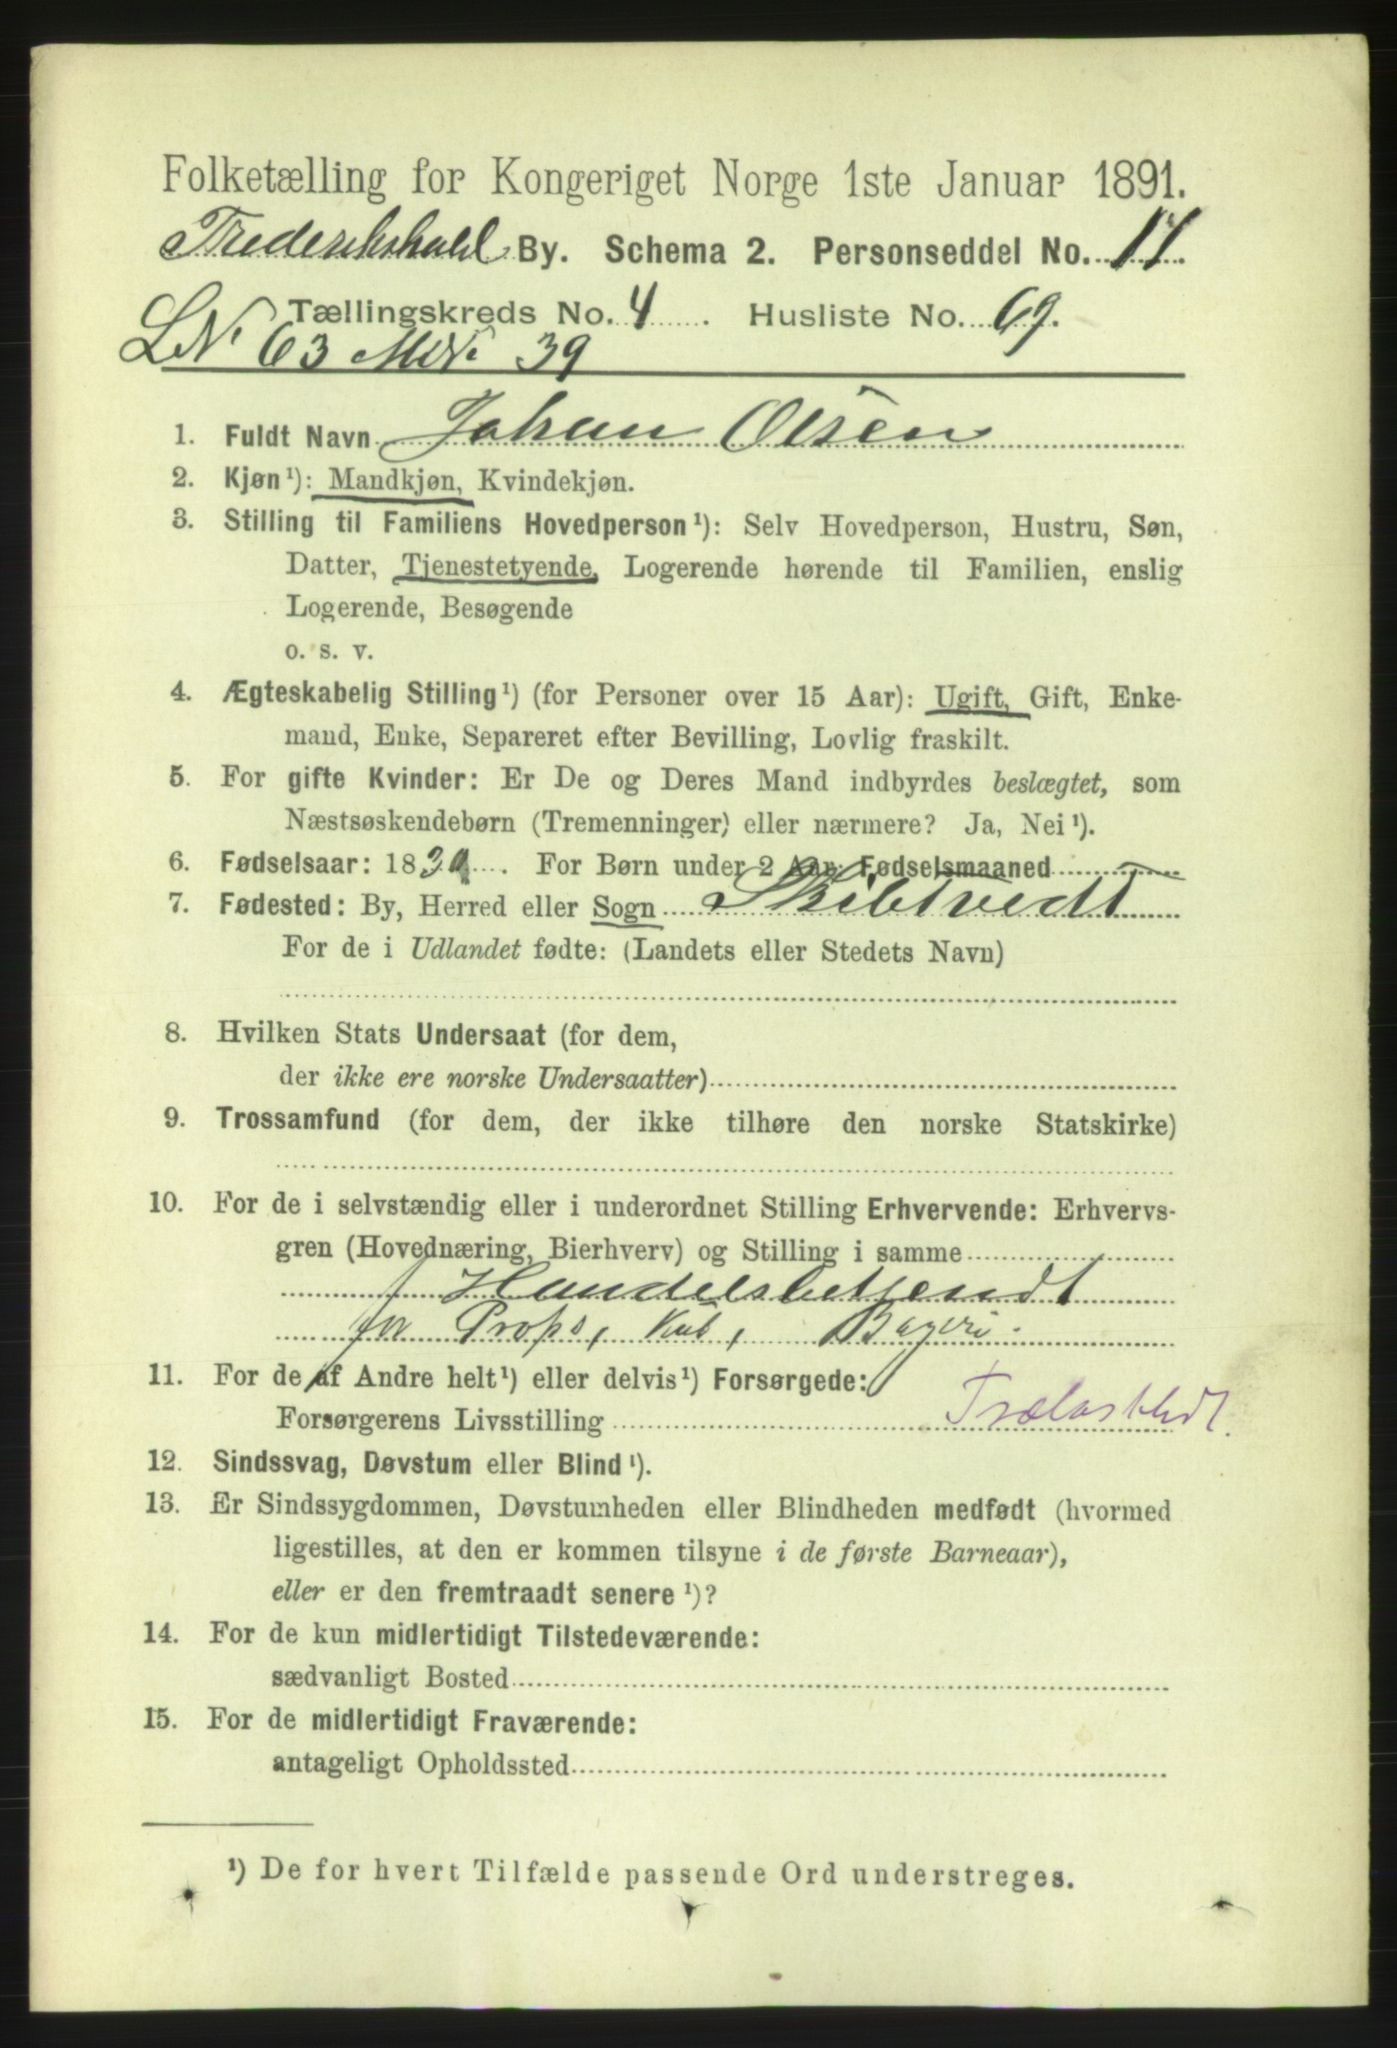 Folketælling for Kongeriget Norge 1ste Januar 1891.
Frederikshald By. Schema 2. Personseddel No. 17.
Tællingskreds No. 4. Husliste No. 69.
LN 63 MN 39
1. Fuldt Navn Johan Olsen
2. Kjøn¹): Mandkjøn, Kvindekjøn.
3. Stilling til Familiens Hovedperson¹): Selv Hovedperson, Hustru, Søn,
Datter, Tjenestetyende, Logerende hørende til Familien, enslig
Logerende, Besøgende
o. s. v.
4. Ægteskabelig Stilling¹) (for Personer over 15 Aar): Ugift, Gift, Enke-
mand, Enke, Separeret efter Bevilling, Lovlig fraskilt.
5. For gifte Kvinder: Er De og Deres Mand indbyrdes beslægtet, som
Næstsøskendebørn (Tremenninger) eller nærmere? Ja, Nei¹).
6. Fødselsaar: 183 . For Børn under 2 Aar: Fødselsmaaned
7. Fødested: By, Herred eller Sogn Skibtvedt
For de i Udlandet fødte: (Landets eller Stedets Navn)
8. Hvilken Stats Undersaat (for dem,
der ikke ere norske Undersaatter)
9. Trossamfund (for dem, der ikke tilhøre den norske Statskirke)
10. For de i selvstændig eller i underordnet Stilling Erhvervende: Erhvervs-
gren (Hovednæring, Bierhverv) og Stilling i samme
Handelsbetjendt
for Props, Kub, Bageri
11. For de af Andre helt¹) eller delvis¹) Forsørgede:
Forsørgerens Livsstilling Trælastbtjt.
12. Sindssvag, Døvstum eller Blind¹).
13. Er Sindssygdommen, Døvstumheden eller Blindheden medfødt (hvormed
ligestilles, at den er kommen tilsyne i de første Barneaar),
eller er den fremtraadt senere¹)?
14. For de kun midlertidigt Tilstedeværende:
sædvanligt Bosted
15. For de midlertidigt Fraværende:
antageligt Opholdssted
¹) De for hvert Tilfælde passende Ord understreges.